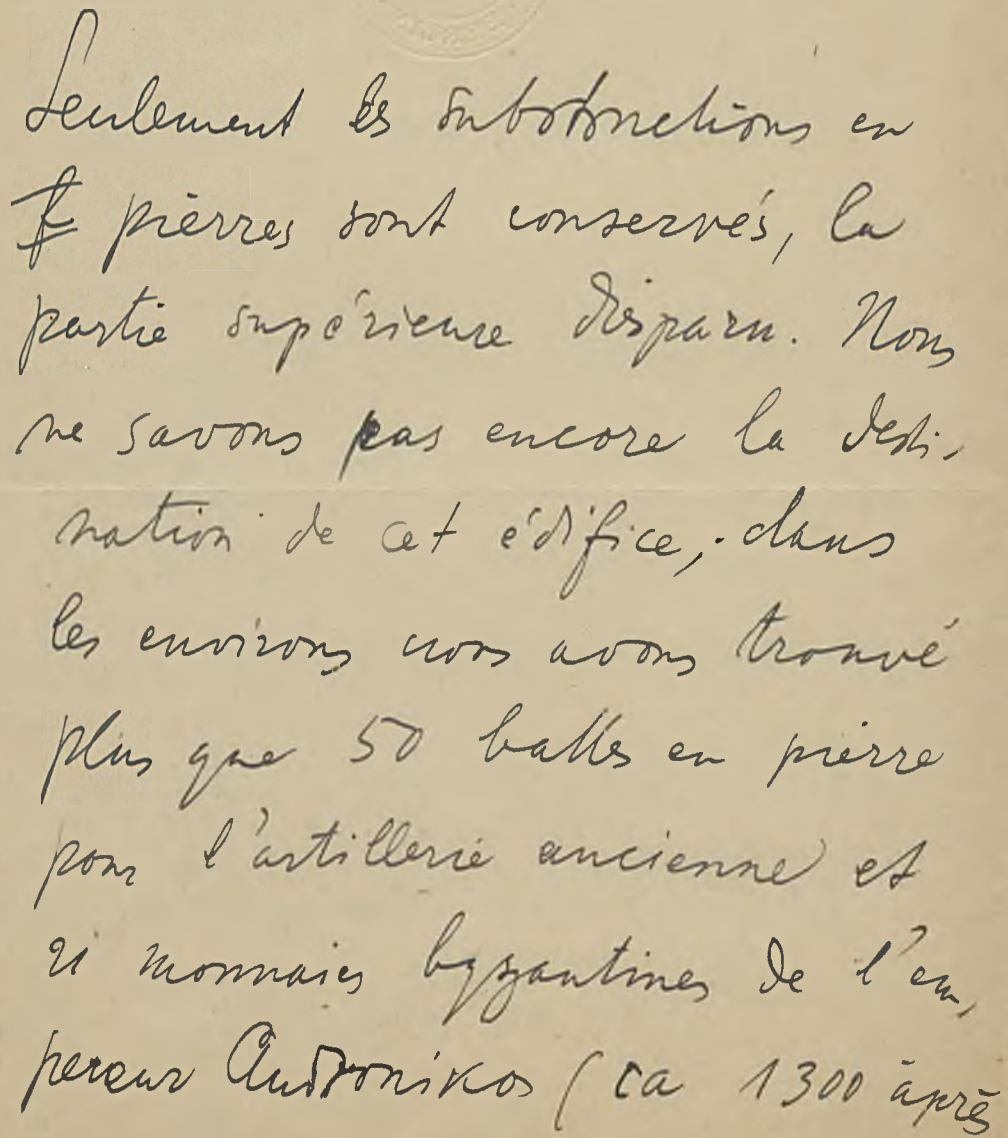 Seulement les substructions en
pierres sont conservés, la
partie supérieure disparu. Nous
ne savons pas encore la desti-
nation de cet édifice, dans
les environs nous avons trouvé
plus que 50 balles en pierre
pour l'artillerie ancienne et
21 monnaies byzantines de l'em-
pereur Andronikos (ca 1300 après